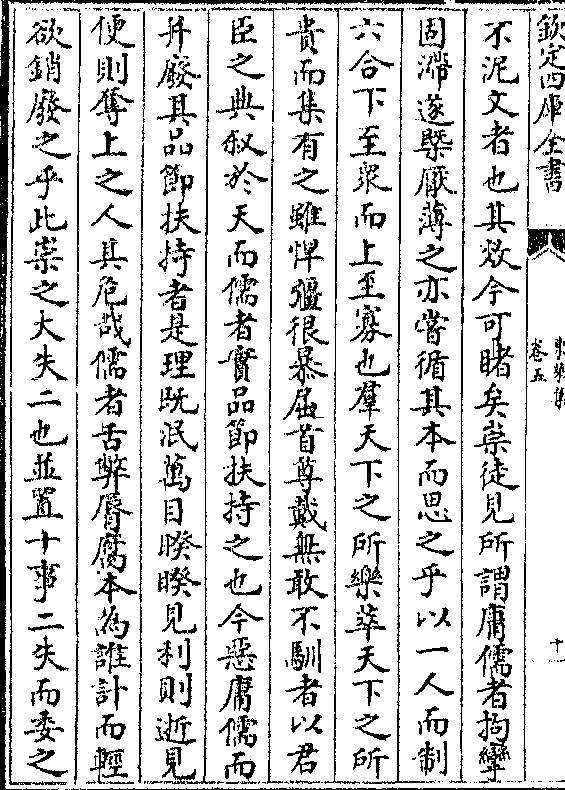 欽定四庫全書
卷五
十
不泥文者也其效今可睹矣崇徒見所謂庸儒者拘攣
固滯遂槩厭薄之亦嘗循其本而思之乎以一人而制
六合下至衆而上至寡也羣天下之所樂萃天下之所
貴而集有之雖悍彊很暴屈首尊戴無敢不馴者以君
臣之典敘於天而儒者實品節扶持之也今惡庸儒而
并廢其品節扶持者是理既泯萬目睽睽見利則逝見
便則奪上之人其危哉儒者舌弊脣腐本為誰計而輕
欲銷廢之乎此崇之大失二也並置十事二失而委之